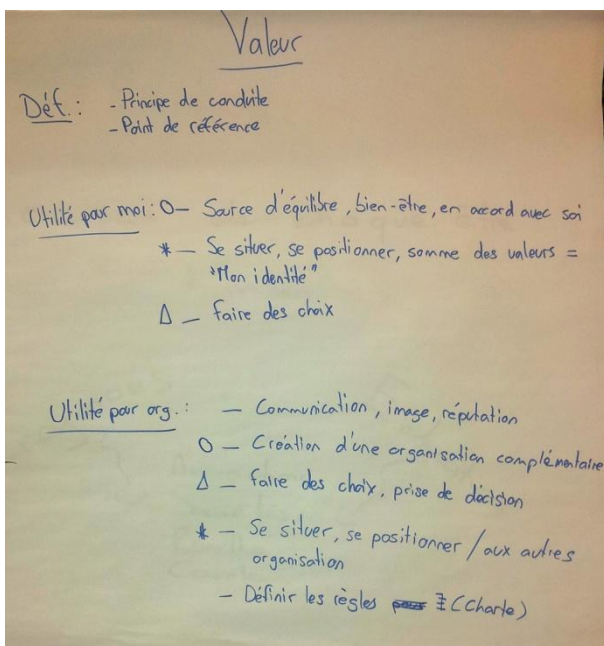 Valeur
Déf.: - Principe de conduite
- Point de référence
Utilité pour moi: O— Source d'équilibre, bien-être, en accord avec soi
* — Se situer, se positionner, somme des valeurs =
"Mon identité"
Δ — faire des choix
Utilité pour org.: — Communication, image, réputation
O — Création d'une organisation complémentaire
Δ — faire des choix, prise de décision
* — Se situer, se positionner / aux autres
organisation
— Définir les règles (Charte)